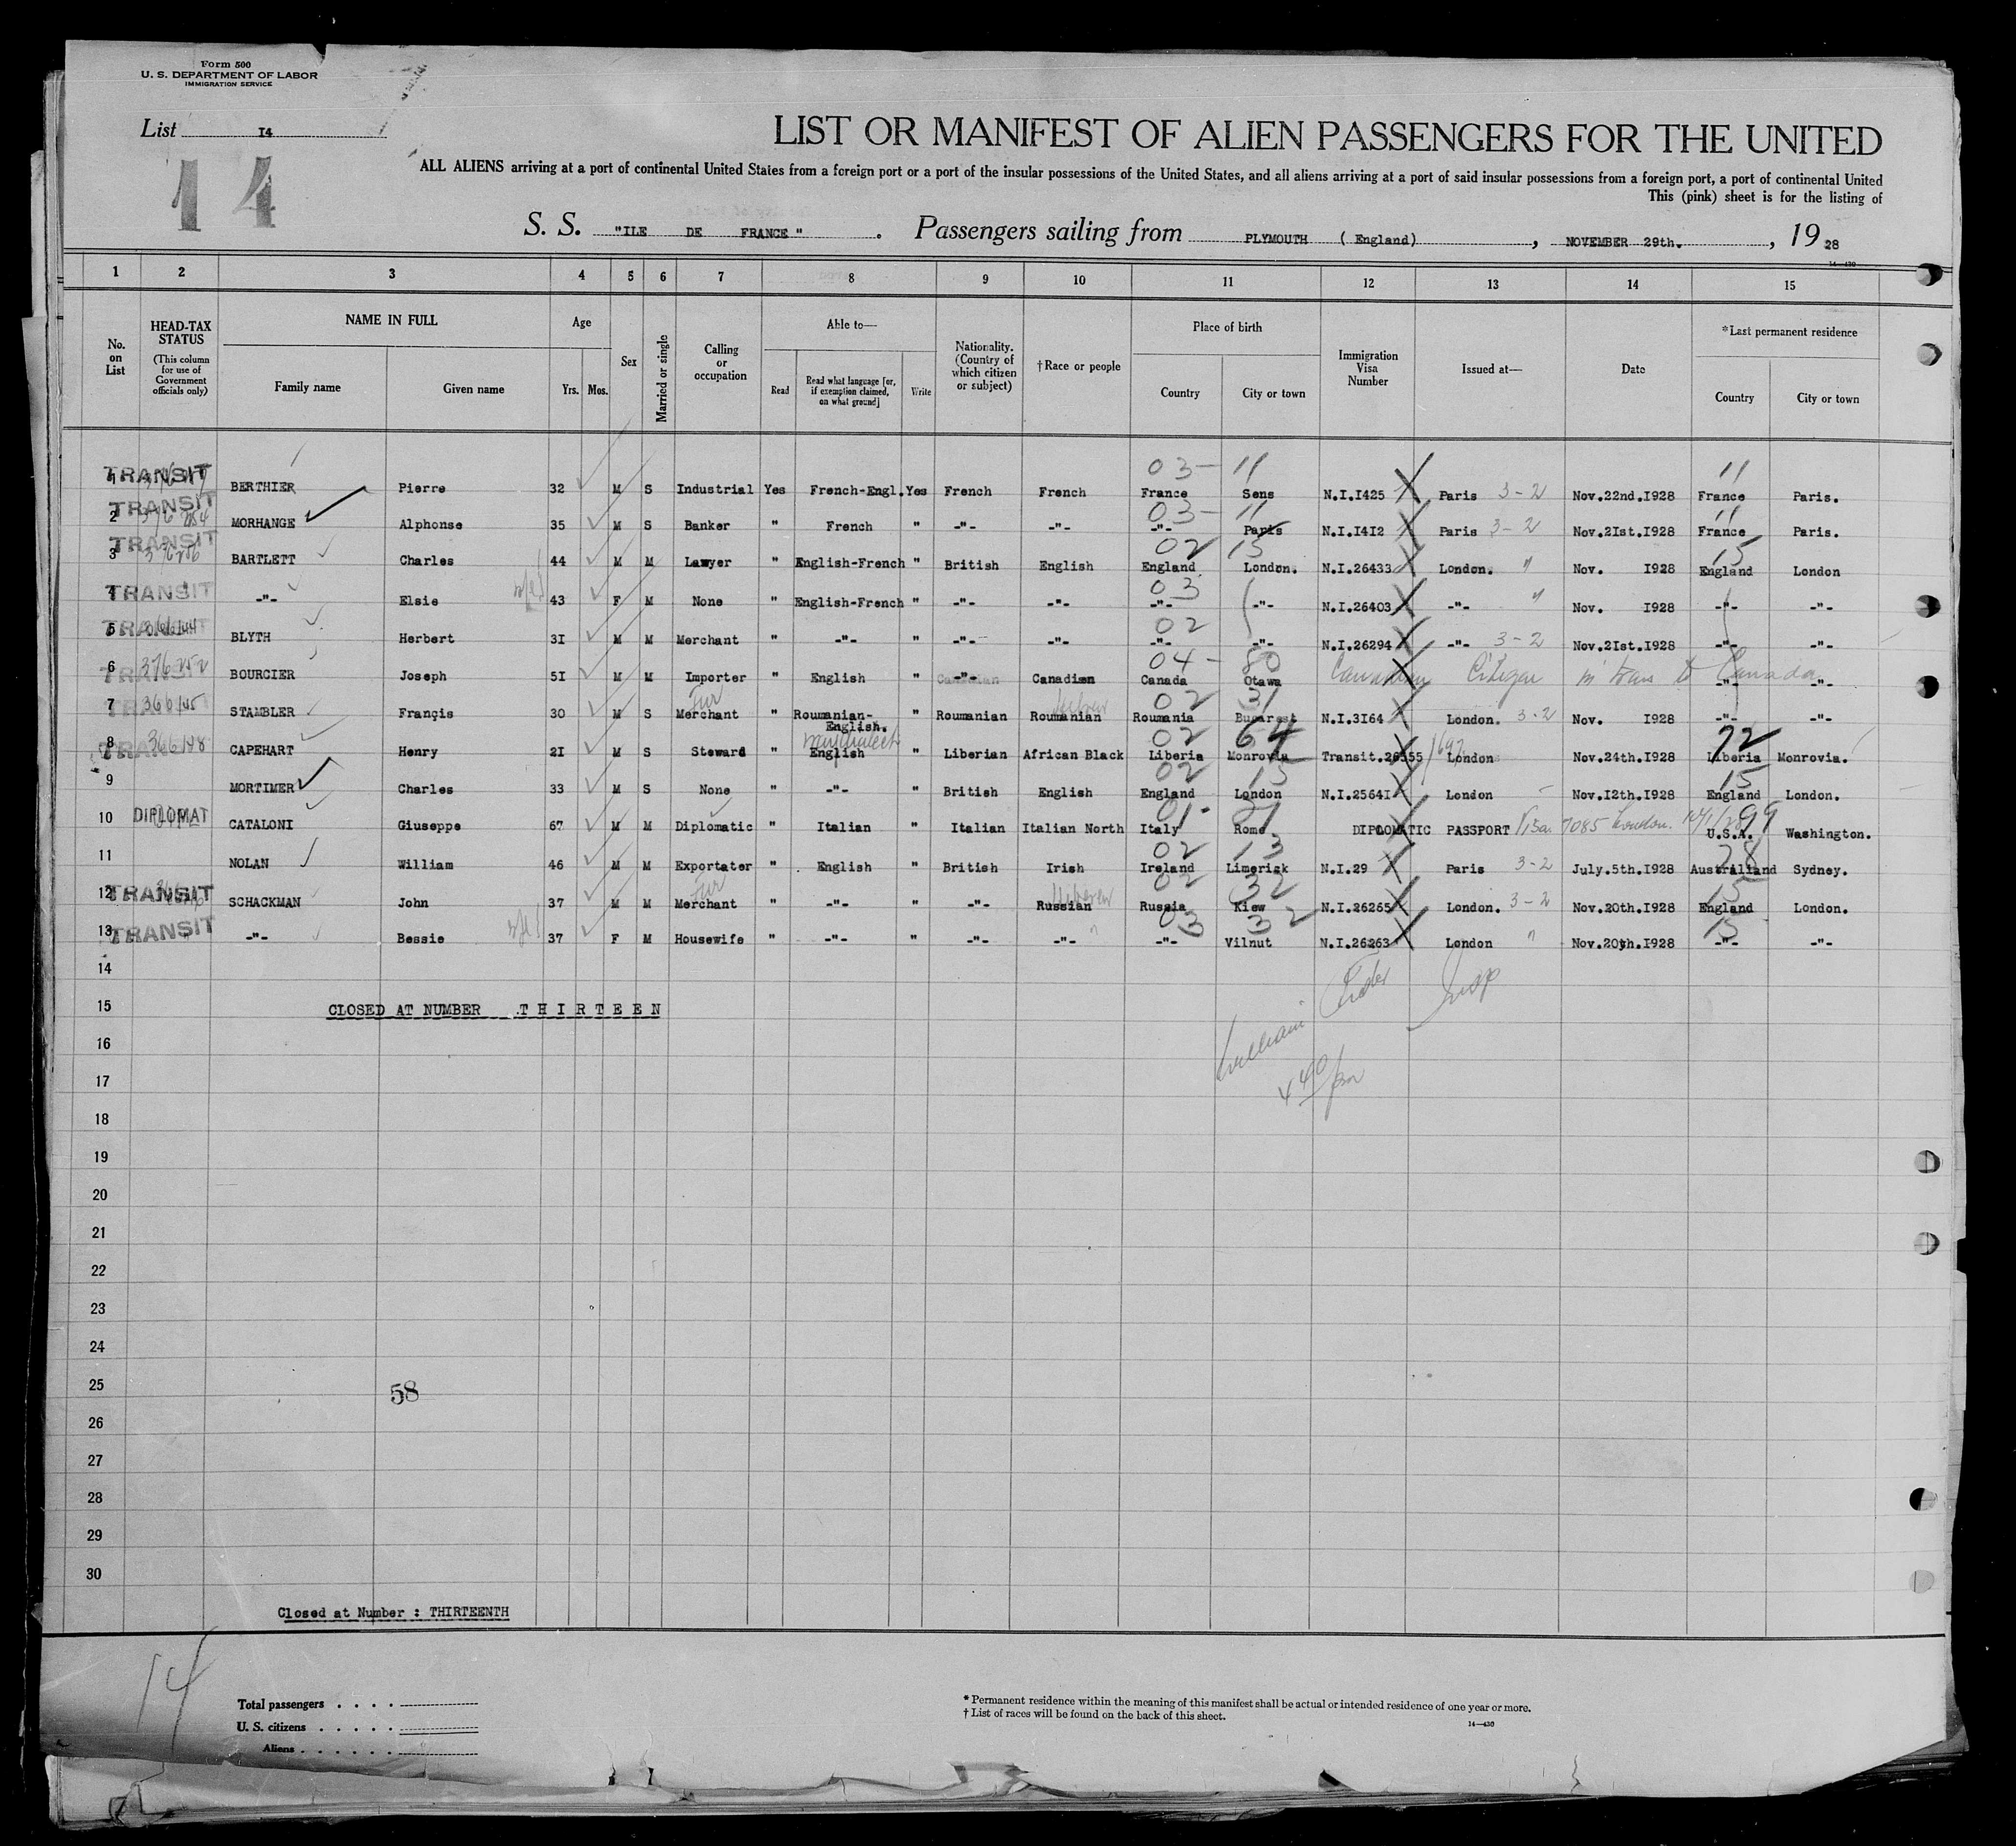 Form 500
U. S. DEPARTMENT OF LABOR
IMMIGRATION SERVICE
List I4
14
LIST OR MANIFEST OF ALIEN PASSENGERS FOR THE UNITED
ALL ALIENS arriving at a port of continental United States from a foreign port or a port of the insular possessions of the United States, and all aliens arriving at a port of said insular possessions from a foreign port, a port of continental United
This (pink) sheet is for the listing of
S. S. "ILE DE FRANCE" . Passengers sailing from PLYMOUTH ( England) , NOVEMBER 29th. , 19 28
14—430
1 2 3 4 5 6 7 8 9 10 11 12 13 14 15
No. on List
HEAD-TAX STATUS (This column for use of Government officials only)
NAME IN FULL Family name Given name
Age Yrs. Mos.
Sex
Married or single
Calling or occupation
Able to— Read Read what language [or, if exemption claimed, on what ground] Write
Nationality. (Country of which citizen or subject)
†Race or people
Place of birth Country City or town
Immigration Visa Number
Issued at—
Date
*Last permanent residence Country City or town
03- 11 11
TRANSIT 1 BERTHIER Pierre 32 M S Industrial Yes French-Engl. Yes French French France Sens N.I.I425 Paris 3-2 Nov.22nd.I928 France Paris.
03- 11 11
TRANSIT 2 MORHANGE Alphonse 35 M S Banker " French " -"- -"- -"- Paris N.I.I4I2 Paris 3-2 Nov.2Ist.I928 France Paris.
02 15 15
TRANSIT 3 BARTLETT Charles 44 M M Lawyer " English-French " British English England London. N.I.26433 London. " Nov. I928 England London
03
TRANSIT 4 -"- Elsie wife 43 F M None " English-French " -"- -"- -"- -"- N.I.26403 -"- " Nov. I928 -"- -"-
02
TRANSIT 5 BLYTH Herbert 3I M M Merchant " -"- " -"- -"- -"- -"- N.I.26294 -"- 3-2 Nov.2Ist.I928 -"- -"-
04- 80
TRANSIT 6 376252 BOURCIER Joseph 5I M M Importer " English " -"- Canadian Canada Otawa Canadian Citizen in trans to Canada -"- -"-
Fur Hebrew 02 31
7 366145 STAMBLER Françis 30 M S Merchant " Roumanian-English. " Roumanian Roumanian Roumania Bucarest N.I.3I64 London. 3-2 Nov. I928 -"- -"-
02 64 72
TRANSIT 8 366148 CAPEHART Henry 2I M S Steward " English " Liberian African Black Liberia Monrovia Transit.26355 London Nov.24th.I928 Liberia Monrovia.
02 15 15
9 MORTIMER Charles 33 M S None " -"- " British English England London N.I.2564I London Nov.I2th.I928 England London.
01- 21 99
DIPLOMAT 10 CATALONI Giuseppe 67 M M Diplomatic " Italian " Italian Italian North Italy Rome DIPLOMATIC PASSPORT Visa 7085 London. U.S.A. Washington.
02 13 28
11 NOLAN William 46 M M Exportater " English " British Irish Ireland Limerisk N.I.29 Paris 3-2 July.5th.I928 Australiand Sydney.
Fur Hebrew 02 32 15
TRANSIT 12 SCHACKMAN John 37 M M Merchant " -"- " -"- Russian Russia Kiew N.I.26265 London. 3-2 Nov.20th.I928 England London.
03 32 15
TRANSIT 13 -"- Bessie wife 37 F M Housewife " -"- " -"- -"- " -"- Vilnut N.I.26263 London " Nov.20th.I928 -"- -"-
14
15 CLOSED AT NUMBER T H I R T E E N
William Insp
16
4 40/pm
17
18
19
20
21
22
23
24
25 58
26
27
28
29
30
Closed at Number : THIRTEENTH
14
Total passengers . . . .
U. S. citizens . . . . .
Aliens . . . . . .
* Permanent residence within the meaning of this manifest shall be actual or intended residence of one year or more.
† List of races will be found on the back of this sheet.
14—430